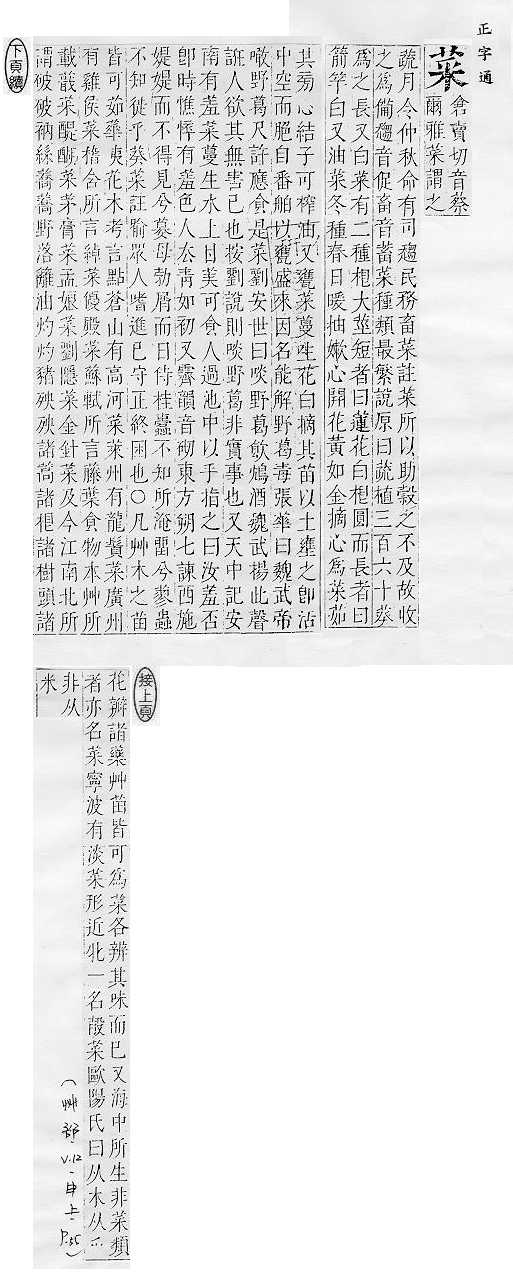 正字通
菜
倉賣切音蔡
爾雅菜謂之
蔬月令仲秋命有司趨民務畜菜註菜所以助穀之不及故收
之為備趨音促畜音蓄菜種類最繁說原曰蔬植三百六十葵
為之長又白菜有二種梱大莖短者曰蓮花白梱圓而長者曰
箭竿白又油菜冬種春日暖抽嫩心開花黃如金摘心為菜茹
其旁心結子可榨油又甕菜蔓生花白摘其苗以土壅之卽活
中空而脆自番舶以甕盛來因名能解野葛毒張華曰魏武帝
噉野葛尺許應食是菜劉安世曰啖野葛飲鴆酒魏武楊此聲
誑人欲其無害已也按劉說則啖野葛非實事也又天中記安
南有羞菜蔓生水上甘美可食人過池中以手指之曰汝羞否
卽時憔悴有羞色人去靑如初又霽韻音砌東方朔七諫西施
媞媞而不得見兮嫫母勃屑而日侍桂蠹不知所淹留兮蓼蟲
不知徙乎葵菜註喩眾人嗜進已守正終困也〇凡艸木之苗
皆可茹華夷花木考言點蒼山有高河菜萊州有龍鬚菜廣州
有雞侯菜稽含所言綽菜優殿菜蘇軾所言藤葉食物本艸所
載蕺采醍醐菜茅膏菜孟娘菜劉隱菜金針菜及今江南北所
謂破破衲絲蕎蕎野落籬油灼灼豬殃殃諸蒿諸梱諸樹頭諸
下頁續
接上頁
花瓣諸藥艸苗皆可為菜各辨其味而已又海中所生非菜類
者亦名菜寧波有淡菜形近牝一名殼菜歐陽氏曰从木从爪
非从
米
(艸部 V.12 申上 P.35)